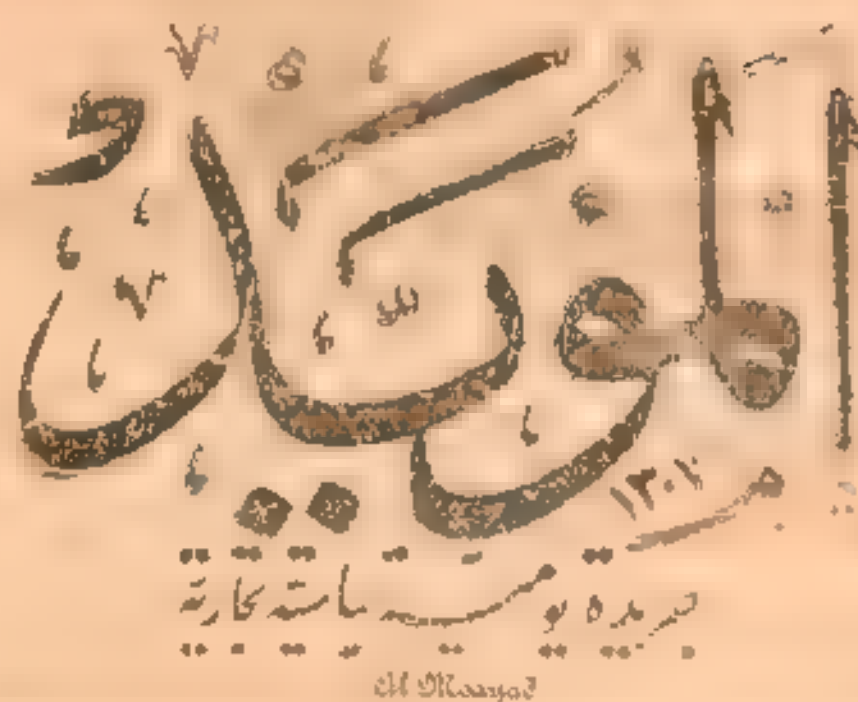 المؤيد
١٣٠٧
جريدة يومية سياسية تجارية
Al Moayad